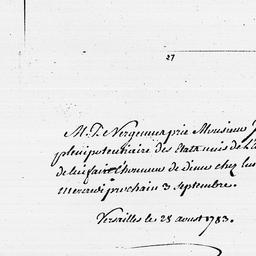 27
M. De Vergennes prie Monsieur
plenipotentiaire des Etats unis de L'A
de lui faire l'honneur de diner chez lui
mercredi prochain 3 Septembre.
Versailles le 28 aoust 1783.